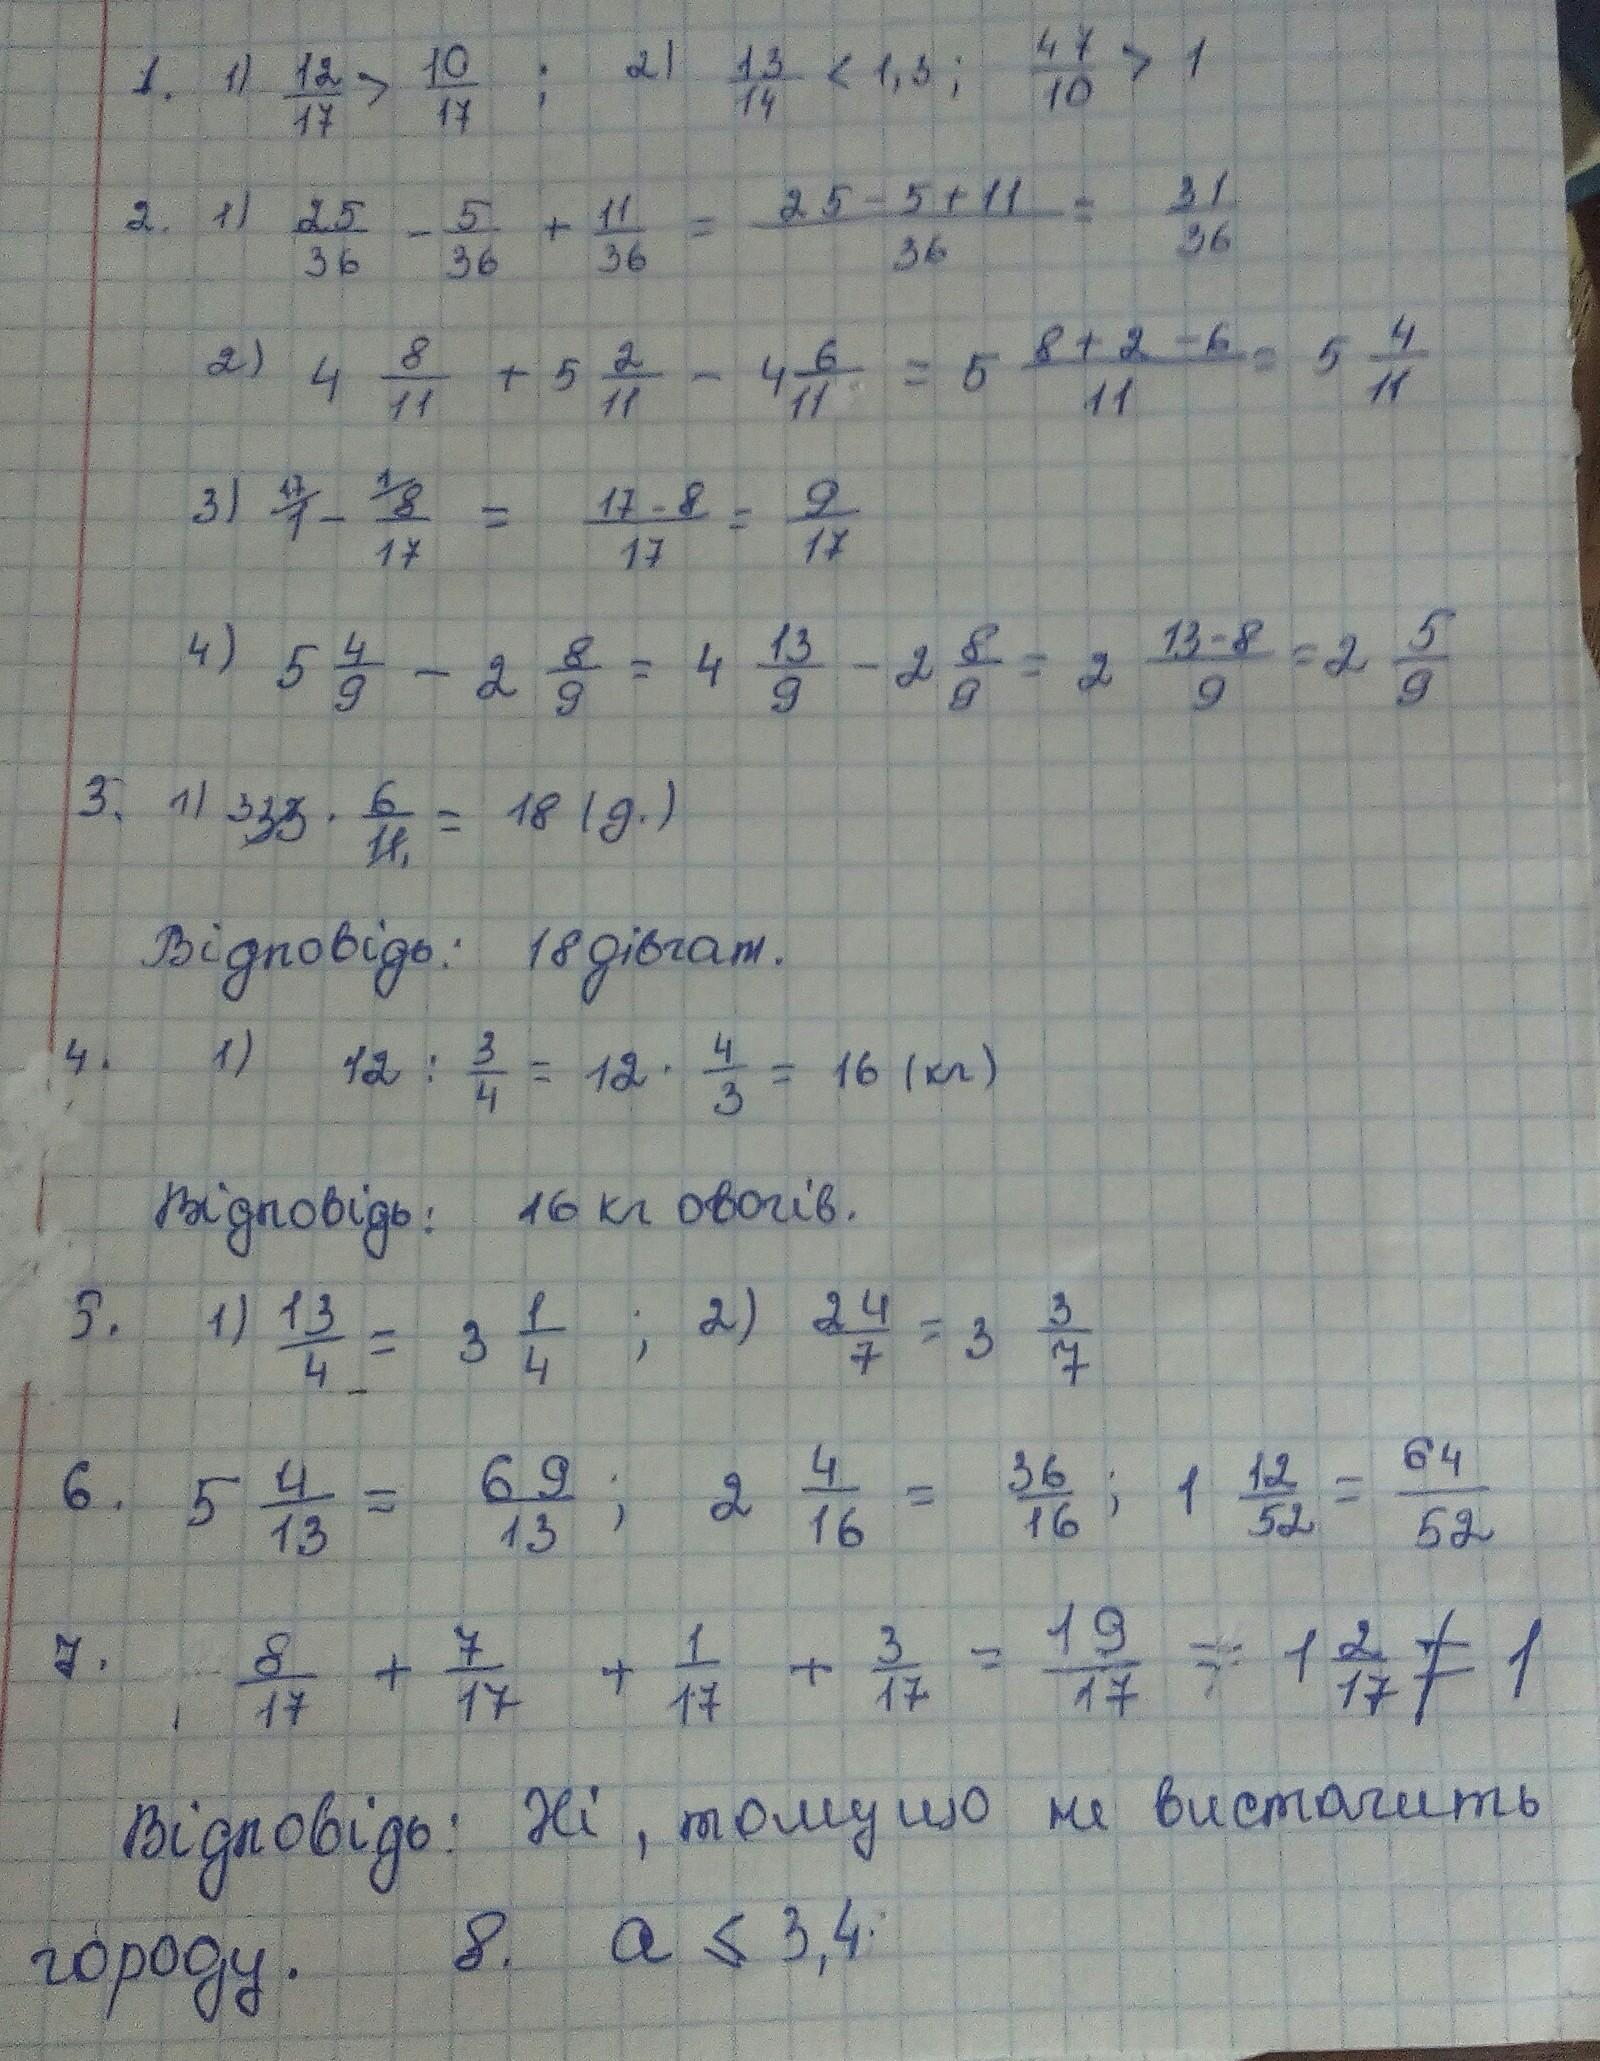 1. 1) 12/17 > 10/17 ; 2) 13/14 < 1,3 ; 47/10 > 1
2. 1) 25/36 - 5/36 + 11/36 = (25 - 5 + 11)/36 = 31/36
2) 4 8/11 + 5 2/11 - 4 6/11 = 5 (8 + 2 - 6)/11 = 5 4/11
3) 17/1 - 8/17 = (17 - 8)/17 = 9/17
4) 5 4/9 - 2 8/9 = 4 13/9 - 2 8/9 = 2 (13 - 8)/9 = 2 5/9
3. 1) 33 · 6/11 = 18 (д.)
Відповідь: 18 дівчат.
4. 1) 12 : 3/4 = 12 · 4/3 = 16 (кг)
Відповідь: 16 кг овочів.
5. 1) 13/4 = 3 1/4 ; 2) 24/7 = 3 3/7
6. 5 4/13 = 69/13 ; 2 4/16 = 36/16 ; 1 12/52 = 64/52
7. 8/17 + 7/17 + 1/17 + 3/17 = 19/17 = 1 2/17 ≠ 1
Відповідь: Ні, тому що не вистачить
городу. 8. a ≤ 3,4.